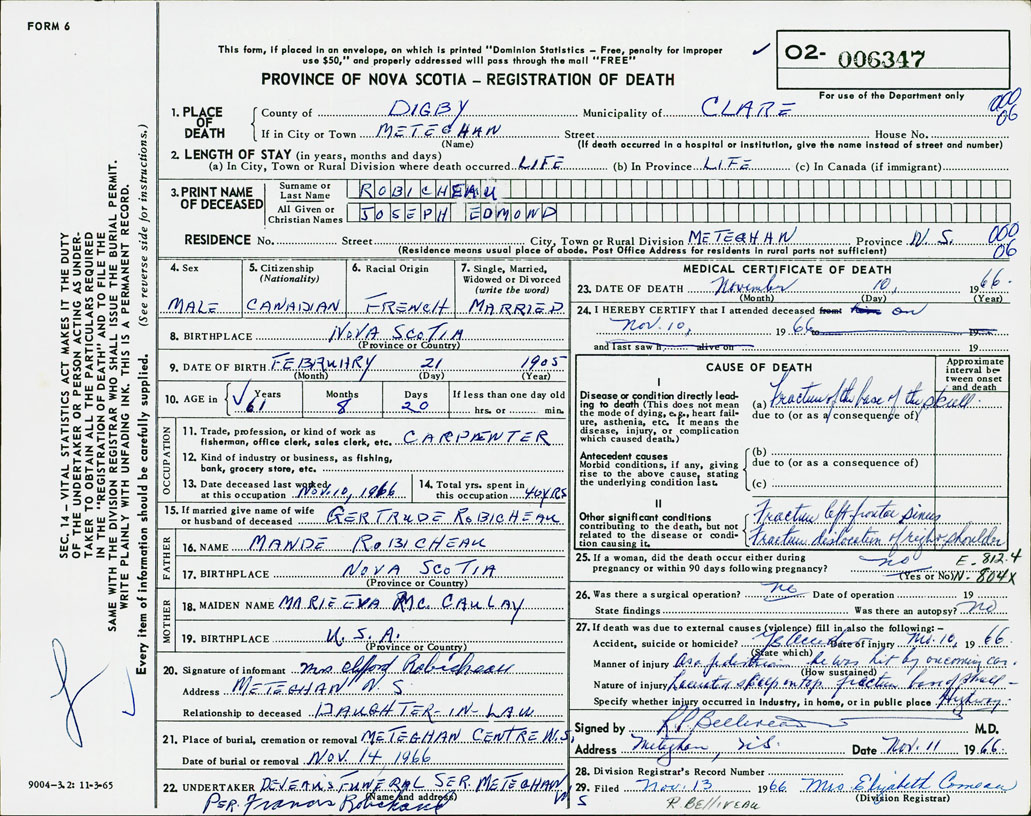 FORM 6
This form, if placed in an envelope, on which is printed "Dominion Statistics – Free, penalty for improper
use $50," and properly addressed will pass through the mail "FREE"
PROVINCE OF NOVA SCOTIA – REGISTRATION OF DEATH
✓ O2- 006347
For use of the Department only
SEC. 14 – VITAL STATISTICS ACT MAKES IT THE DUTY
OF THE UNDERTAKER OR PERSON ACTING AS UNDER-
TAKER TO OBTAIN ALL THE PARTICULARS REQUIRED
IN THE "REGISTRATION OF DEATH" AND TO FILE THE
SAME WITH THE DIVISION REGISTRAR WHO SHALL ISSUE THE BURIAL PERMIT.
WRITE PLAINLY WITH UNFADING INK. THIS IS A PERMANENT RECORD.
Every item of information should be carefully supplied. (See reverse side for instructions.)
1. PLACE OF DEATH County of DIGBY Municipality of CLARE 000 06
If in City or Town METEGHAN Street House No.
(Name) (If death occurred in a hospital or institution, give the name instead of street and number)
2. LENGTH OF STAY (in years, months and days)
(a) In City, Town or Rural Division where death occurred LIFE (b) In Province LIFE (c) In Canada (if immigrant)
3. PRINT NAME OF DECEASED Surname or Last Name ROBICHEAU
All Given or Christian Names JOSEPH EDMOND
RESIDENCE No. Street City, Town or Rural Division METEGHAN Province N.S. 000 06
(Residence means usual place of abode. Post Office Address for residents in rural parts not sufficient)
4. Sex MALE
5. Citizenship (Nationality) CANADIAN
6. Racial Origin FRENCH
7. Single, Married, Widowed or Divorced (write the word) MARRIED
8. BIRTHPLACE NOVA SCOTIA
(Province or Country)
9. DATE OF BIRTH FEBRUARY 21 1905
(Month) (Day) (Year)
10. AGE in ✓ Years 61 Months 8 Days 20 If less than one day old hrs. or min.
OCCUPATION
11. Trade, profession, or kind of work as
fisherman, office clerk, sales clerk, etc. CARPENTER
12. Kind of industry or business, as fishing,
bank, grocery store, etc.
13. Date deceased last worked at this occupation Nov. 10, 1966
14. Total yrs. spent in this occupation 40 YRS
15. If married give name of wife or husband of deceased GERTRUDE ROBICHEAU
FATHER
16. NAME MANDE ROBICHEAU
17. BIRTHPLACE NOVA SCOTIA
(Province or Country)
MOTHER
18. MAIDEN NAME MARIE EVA MC. CAULAY
19. BIRTHPLACE U.S.A.
(Province or Country)
20. Signature of informant Mrs. Clifford Robicheau
Address METEGHAN N.S.
Relationship to deceased DAUGHTER-IN-LAW
21. Place of burial, cremation or removal METEGHAN CENTRE N.S.
Date of burial or removal NOV. 14 1966
22. UNDERTAKER DEVEAU'S FUNERAL SER. METEGHAN N.S
(Name and address)
PER. Francis Robichaud
MEDICAL CERTIFICATE OF DEATH
23. DATE OF DEATH November 10, 1966.
(Month) (Day) (Year)
24. I HEREBY CERTIFY that I attended deceased from on
Nov. 10, 1966 to 19
and last saw h alive on 19
CAUSE OF DEATH
Approximate interval between onset and death
I
Disease or condition directly leading to death (This does not mean
the mode of dying, e.g., heart failure, asthenia, etc. It means the
disease, injury, or complication
which caused death.)
(a) Fracture of the base of the skull.
due to (or as a consequence of)
Antecedent causes
Morbid conditions, if any, giving
rise to the above cause, stating
the underlying condition last.
(b)
due to (or as a consequence of)
(c)
II
Other significant conditions
contributing to the death, but not
related to the disease or condition causing it.
Fracture left frontal sinus
Fracture dislocation of right shoulder
25. If a woman, did the death occur either during
pregnancy or within 90 days following pregnancy? no
(Yes or No)
E - 812.4
N - 804X
26. Was there a surgical operation? no Date of operation 19
State findings Was there an autopsy? no
27. If death was due to external causes (violence) fill in also the following: –
Accident, suicide or homicide? Accident Date of injury Nov. 10, 1966.
(State which)
Manner of injury As a pedestrian he was hit by oncoming car.
(How sustained)
Nature of injury scalp fracture base of skull –
Specify whether injury occurred in Industry, in home, or in public place Highway
Signed by Belliveau M.D.
Address Meteghan, N.S. Date Nov. 11 1966.
28. Division Registrar's Record Number
29. Filed Nov. 13 1966 Mrs. Elizabeth Comeau
(Division Registrar)
R. BELLIVEAU
9004-3.2: 11-3-65